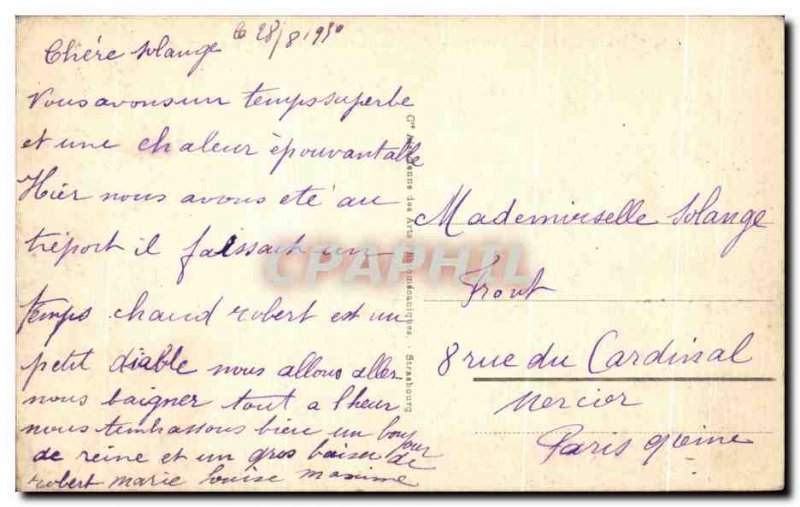 le 28/8 1930
Chère solange
Vous avons un temps superbe
et une chaleur épouvantable
Hier nous avons eté au
tréport il faissait un
temps chaud robert est un
petit diable nous allons aller
nous baigner tout a lheur
nous tembrassons bien un bonjour
de reine et un gros baiser de
robert marie louise maxime
Cie des Arts Photomécaniques. - Strasbourg
CPAPHIL
Mademoiselle Solange
Front
8 rue du Cardinal
Mercier
Paris 9eime